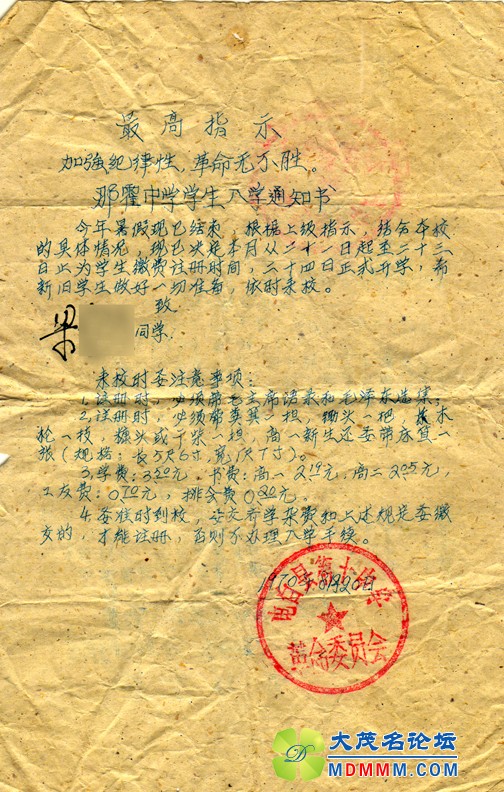 最高指示
加强纪律性,革命无不胜。
那霍中学学生入学通知书
今年暑假现已结束,根据上级指示,结合本校
的具体情况,现已决定本月从二十一日起至二十三
日止为学生缴费注册时间,二十四日正式开学,希
新旧学生做好一切准备,依时来校。
致
梁 同学.
来校时要注意事项:
1.注册时,必须带毛主席语录和毛泽东选集;
2.注册时,必须带粪箕一担,锄头一把,木
轮一枝,头或干柴一担,高一新生还要带床宜一
张(规格:长5尺6寸,宽尺7寸)。
3.学费:3.00元 书费:高一2.19元,高二2.05元,
工友费:0.70元,排舍费0.20元。
4.要准时到校,要交齐学杂费和上述规定要缴
交的,才能注册,否则不办理入学手续。
1970年8月20日
电白县第十八中学
革命委员会
大茂名论坛
MDMMM.COM